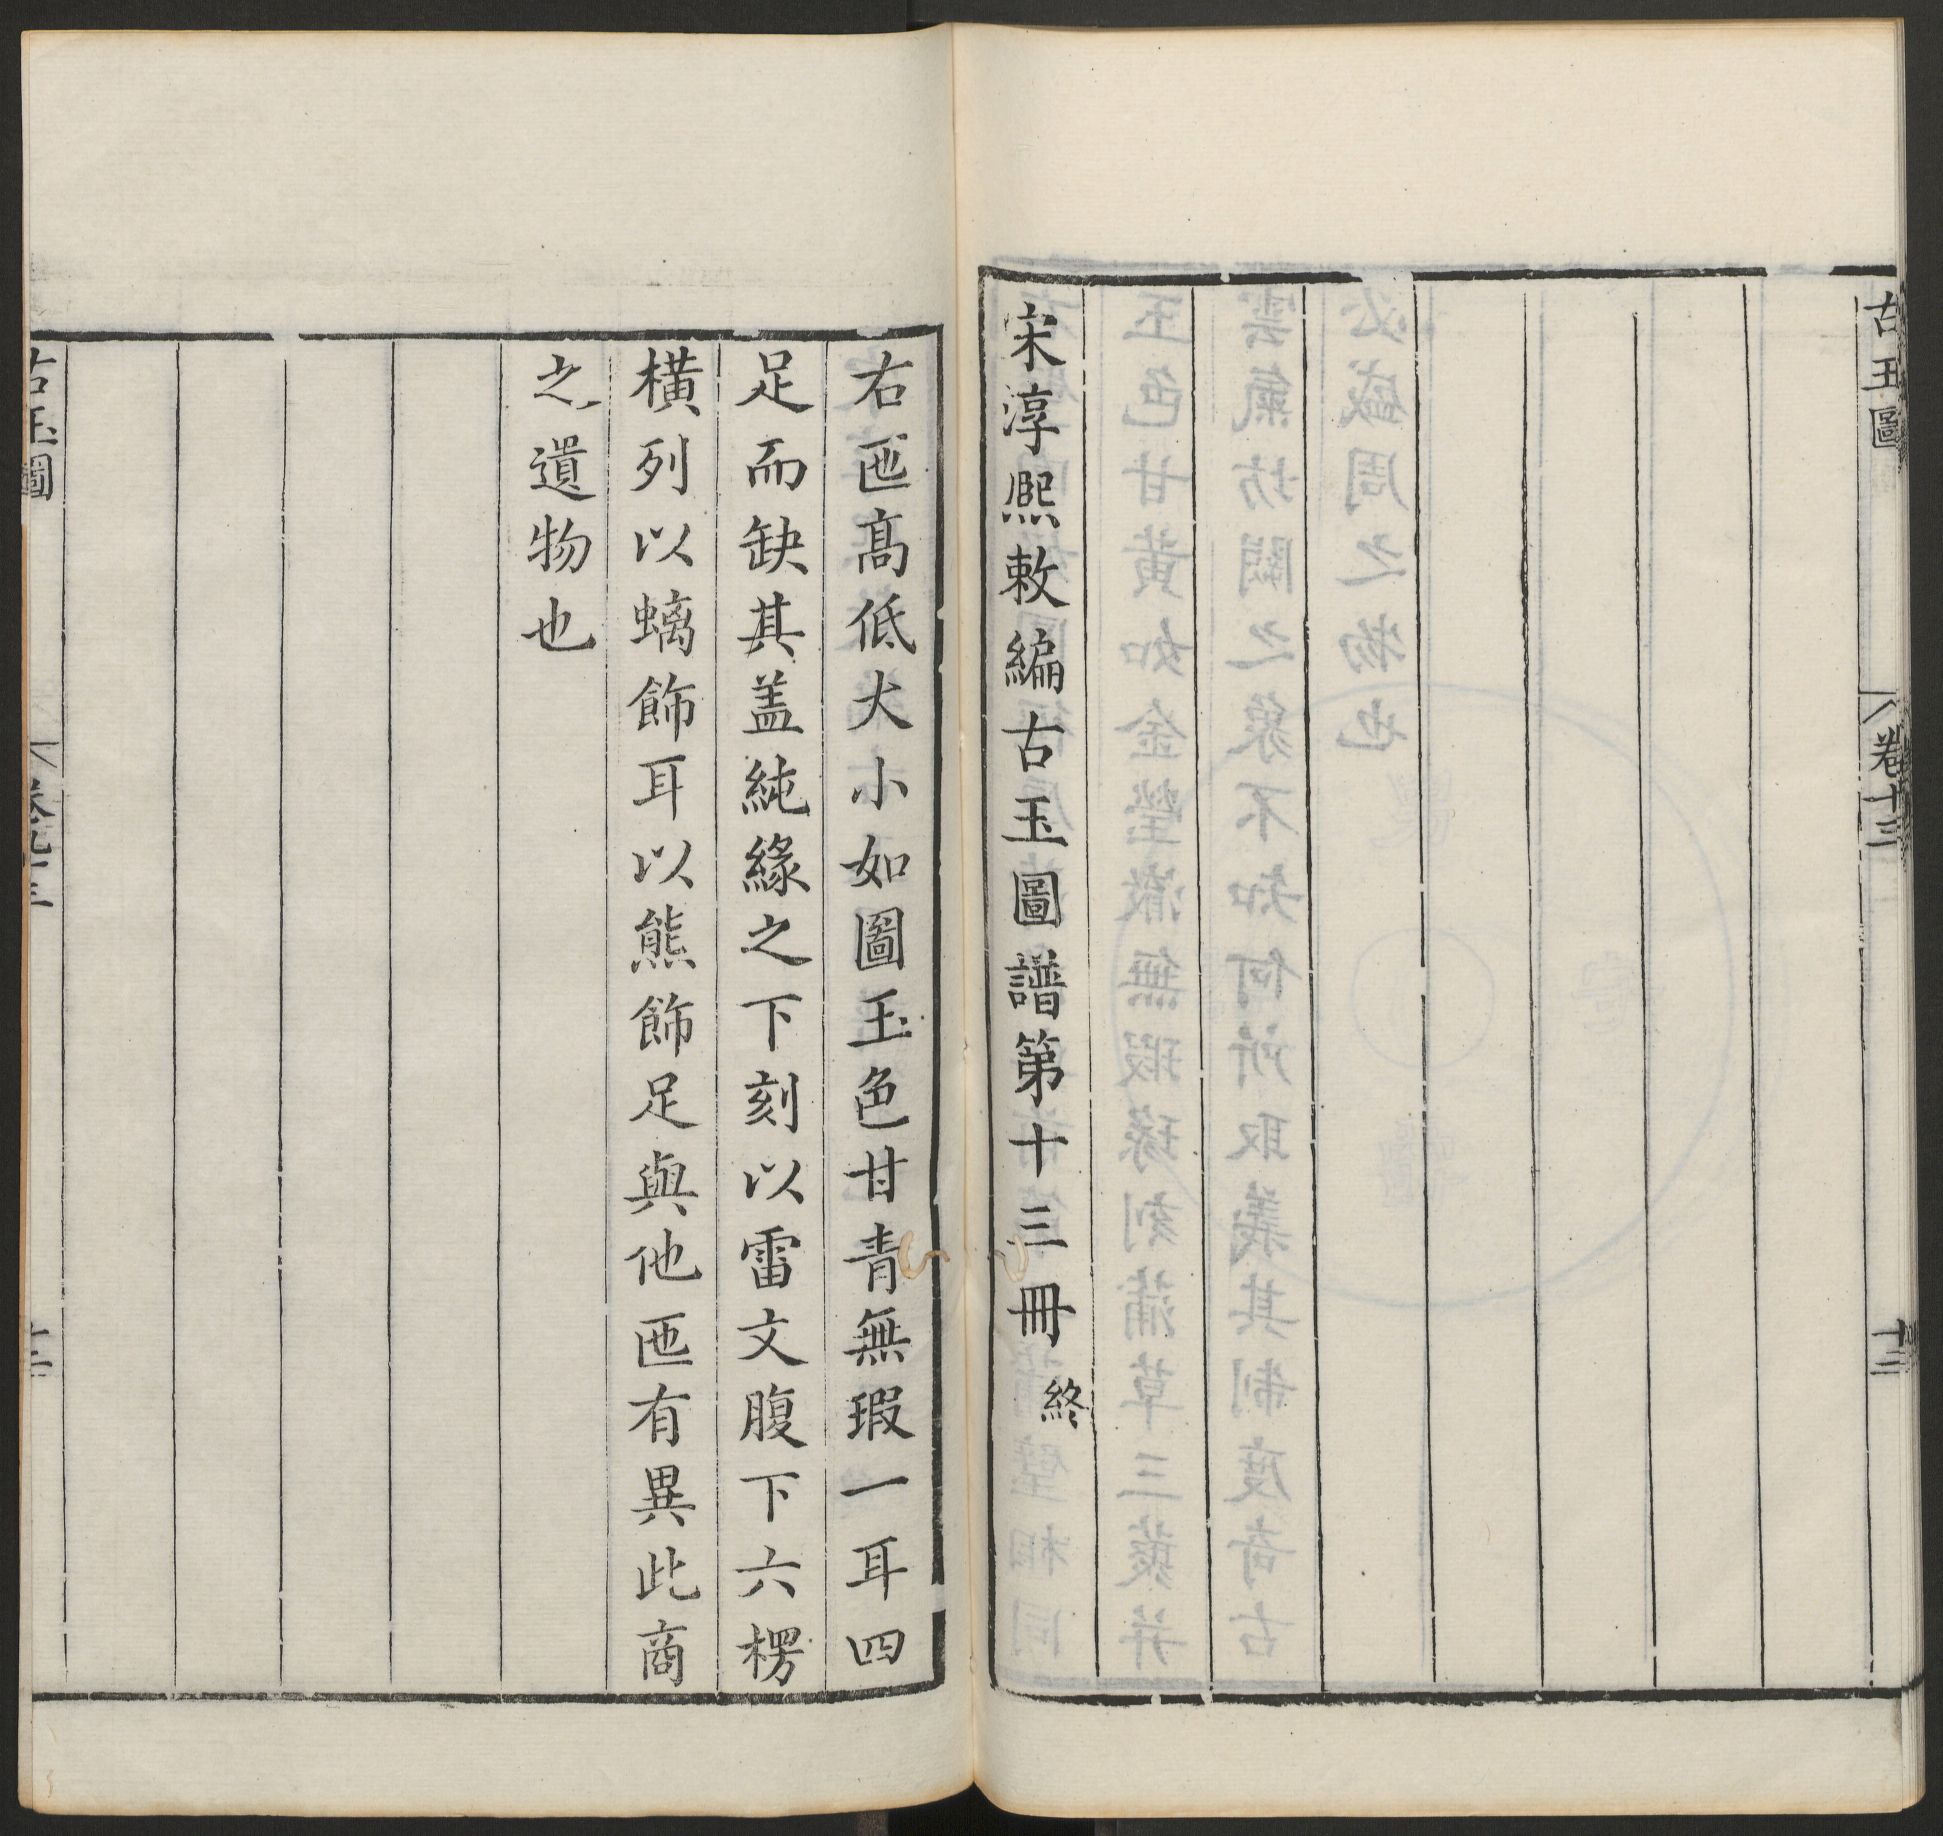 古玉圖
卷十三
十三
宋淳熙敕編古玉圖譜第十三冊 終
右匜高低大小如圖玉色甘青無瑕一耳四
足而缺其盖純緣之下刻以雷文腹下六楞
橫列以螭飾耳以熊飾足與他匜有異此商
之遺物也
古玉圖